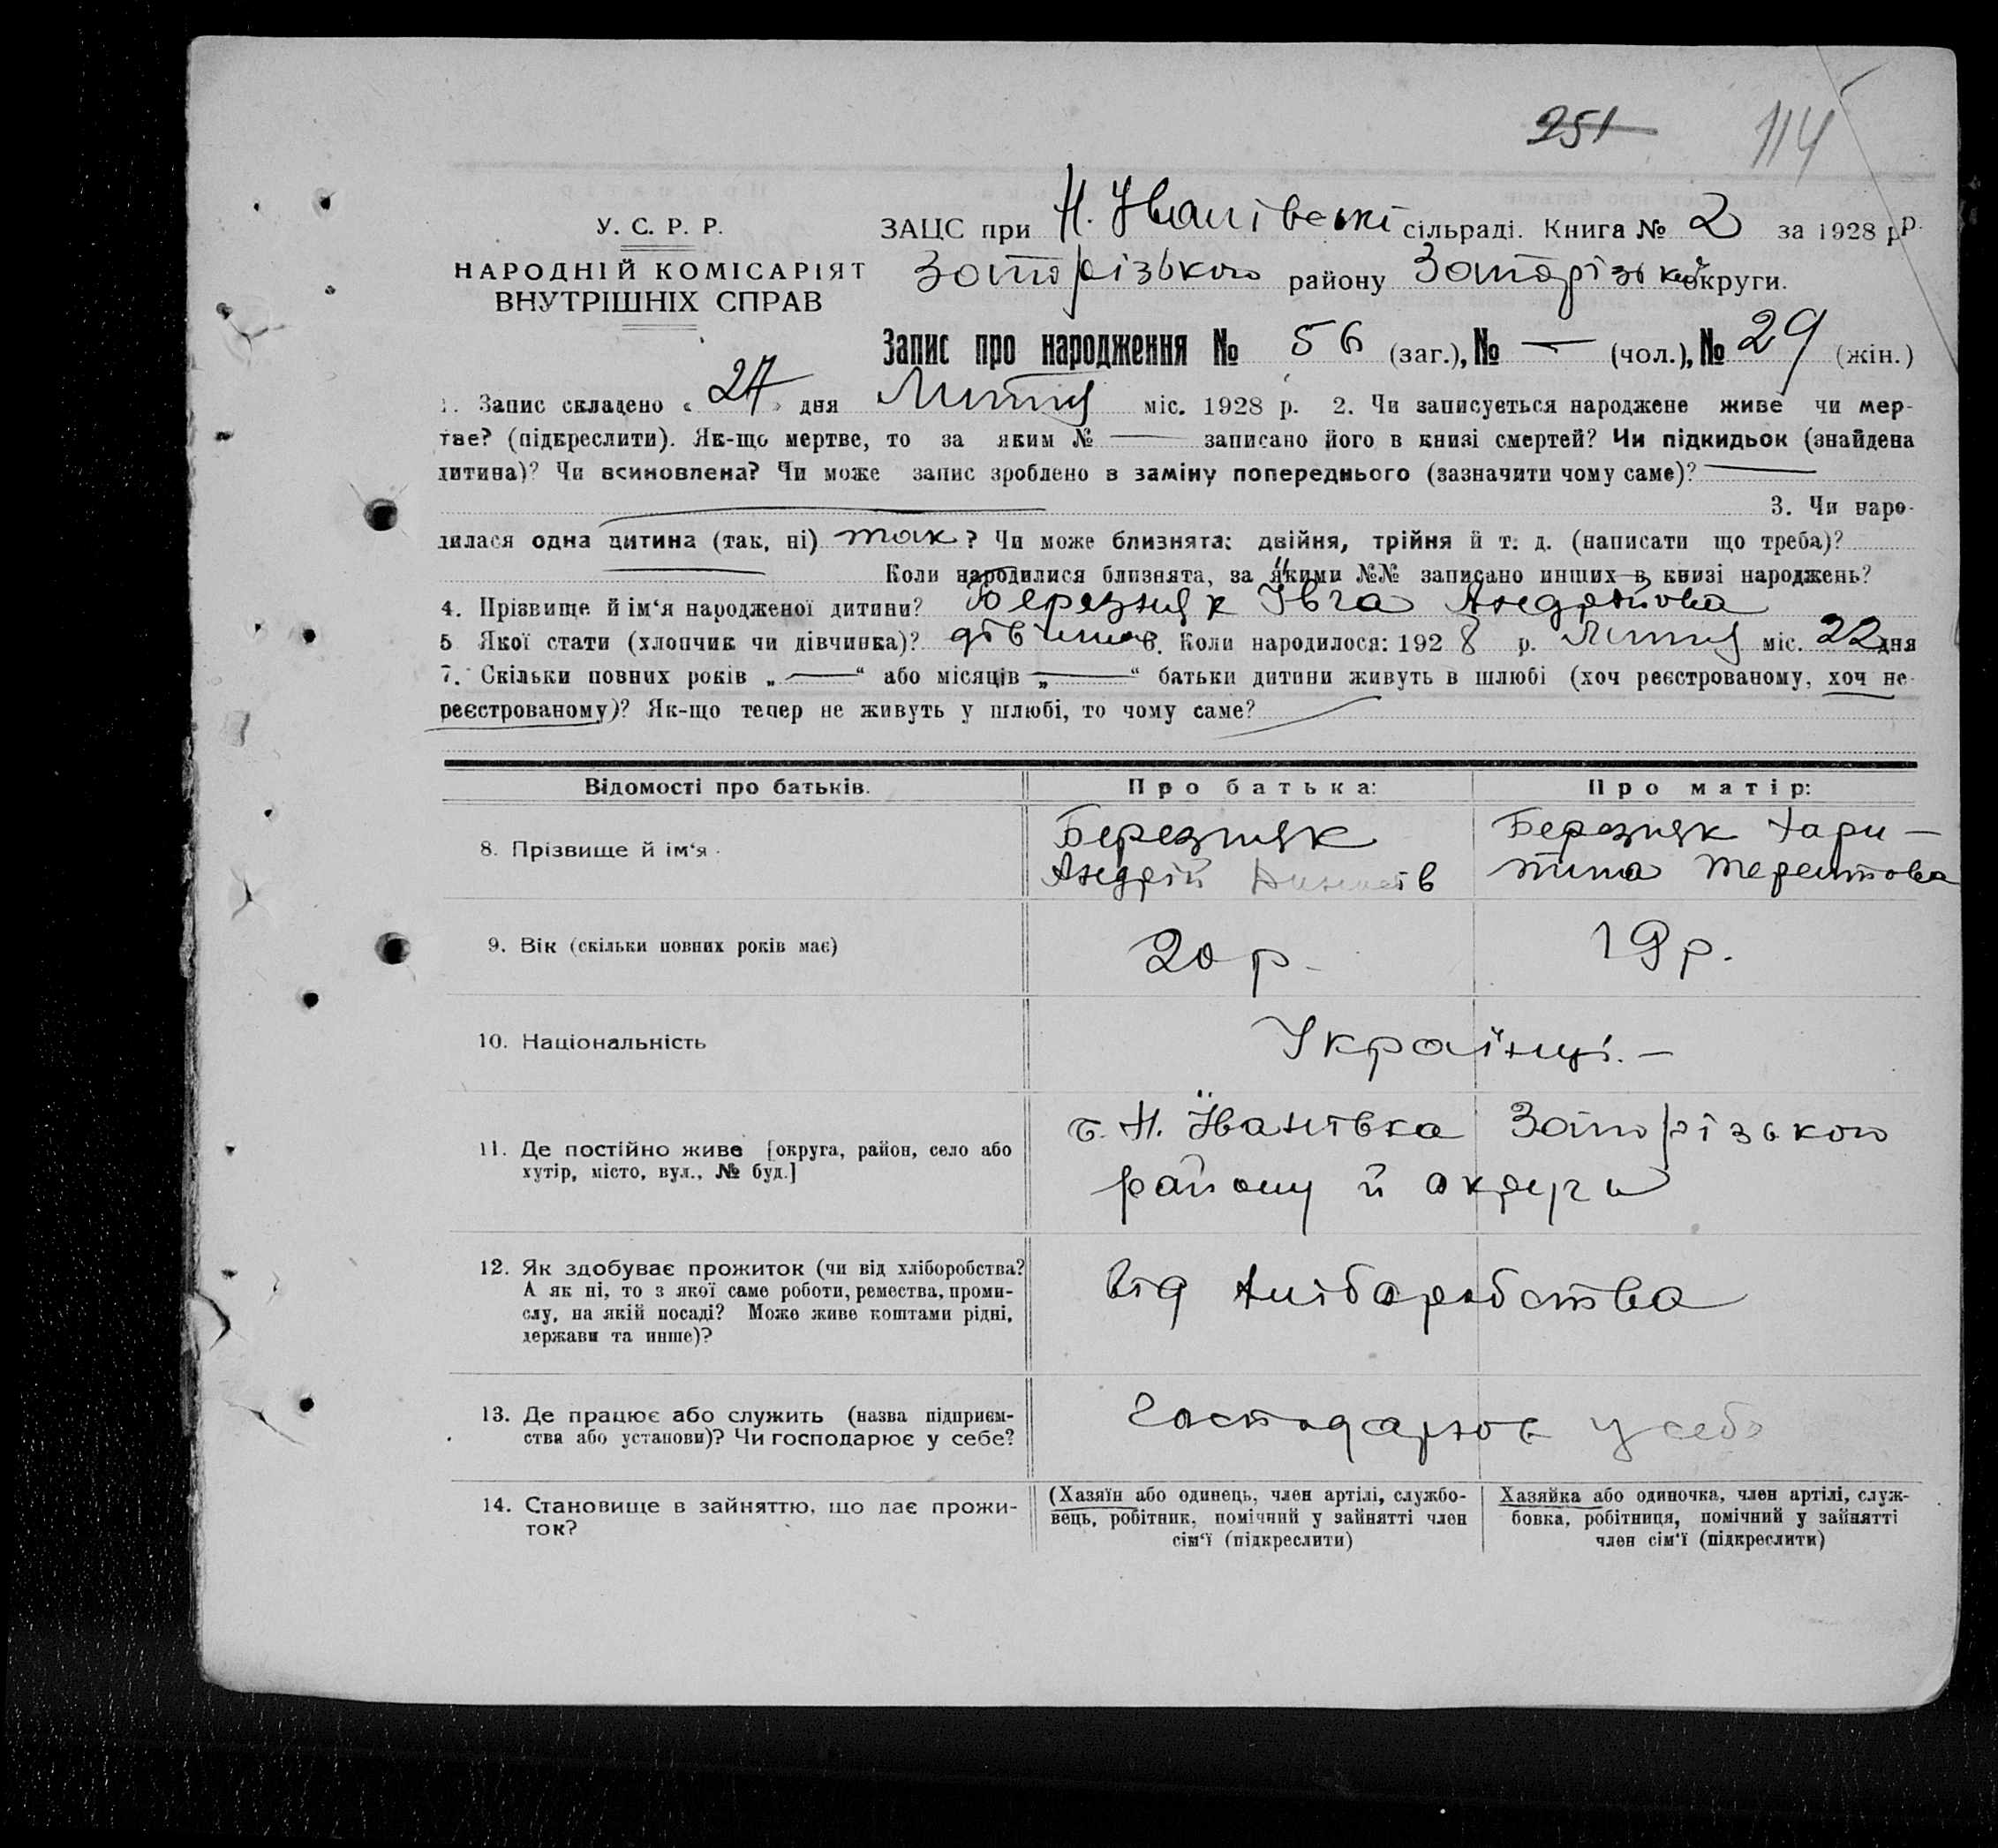 251 114
У. С. Р. Р.
НАРОДНІЙ КОМІСАРІЯТ
ВНУТРІШНІХ СПРАВ
ЗАЦС при Н. Іванівські сільраді. Книга № 2 за 1928 р р.
Запорізького району Запорізької округи.
Запис про народження № 56 (заг.), № — (чол.), № 29 (жін.)
1. Запис складено « 27 » дня Липня міс. 1928 р. 2. Чи записується народжене живе чи мер-
тве? (підкреслити). Як-що мертве, то за яким № — записано його в книзі смертей? Чи підкидьок (знайдена
дитина)? Чи всиновлена? Чи може запис зроблено в заміну попереднього (зазначити чому саме)? —
3. Чи наро-
дилася одна дитина (так, ні) так? Чи може близнята: двійня, трійня й т. д. (написати що треба)?
Коли народилися близнята, за якими №№ записано инших в книзі народжень?
4. Прізвище й ім‘я народженої дитини? Березняк Ївга Андріївна
5 Якої стати (хлопчик чи дівчинка)? дівчина 6. Коли народилося: 1928 р. Липня міс. 22 дня
7. Скільки повних років „ — “ або місяців „ — “ батьки дитини живуть в шлюбі (хоч реєстрованому, хоч не-
реєстрованому)? Як-що тепер не живуть у шлюбі, то чому саме?
Відомості про батьків. Про батька: Про матір:
8. Прізвище й ім‘я
Березняк
Андрій
Березняк Хари-
тина Терентова
9. Вік (скільки повних років має) 20 р. 19 р.
10. Національність Українці. —
11. Де постійно живе [округа, район, село або
хутір, місто, вул., № буд.]
с. Н. Їванівка Запорізького
району й округи
12. Як здобуває прожиток (чи від хліборобства?
А як ні, то з якої саме роботи, ремества, проми-
слу, на якій посаді? Може живе коштами рідні,
держави та инше)?
Від хліборобства
13. Де працює або служить (назва підприєм-
ства або установи)? Чи господарює у себе?
Господарює у себе
14. Становище в зайняттю, що дає прожи-
ток?
(Хазяїн або одинець, член артілі, службо-
вець, робітник, помічний у зайнятті член
сім‘ї (підкреслити)
Хазяйка або одиночка, член артілі, служ-
бовка, робітниця, помічний у зайнятті
член сім‘ї (підкреслити)